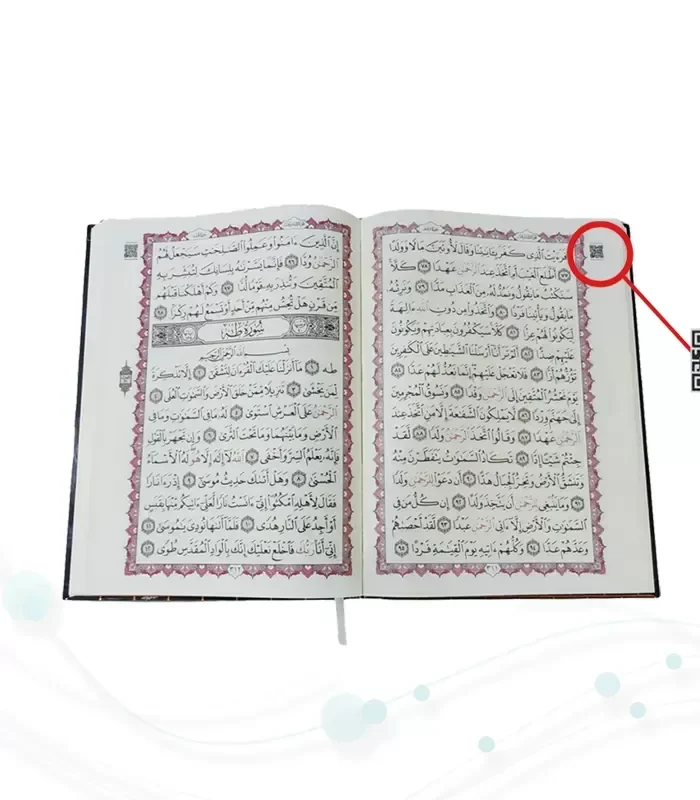 أَفَرَءَيْتَ ٱلَّذِي كَفَرَ بِـَٔايَٰتِنَا وَقَالَ لَأُوتَيَنَّ مَالٗا وَوَلَدًا
٧٧ أَطَّلَعَ ٱلۡغَيۡبَ أَمِ ٱتَّخَذَ عِندَ ٱلرَّحۡمَٰنِ عَهۡدٗا ٧٨ كَلَّاۚ
سَنَكۡتُبُ مَا يَقُولُ وَنَمُدُّ لَهُۥ مِنَ ٱلۡعَذَابِ مَدّٗا ٧٩ وَنَرِثُهُۥ
مَا يَقُولُ وَيَأۡتِينَا فَرۡدٗا ٨٠ وَٱتَّخَذُواْ مِن دُونِ ٱللَّهِ ءَالِهَةٗ
لِّيَكُونُواْ لَهُمۡ عِزّٗا ٨١ كَلَّاۚ سَيَكۡفُرُونَ بِعِبَادَتِهِمۡ وَيَكُونُونَ
عَلَيۡهِمۡ ضِدًّا ٨٢ أَلَمۡ تَرَ أَنَّآ أَرۡسَلۡنَا ٱلشَّيَٰطِينَ عَلَى ٱلۡكَٰفِرِينَ
تَؤُزُّهُمۡ أَزّٗا ٨٣ فَلَا تَعۡجَلۡ عَلَيۡهِمۡۖ إِنَّمَا نَعُدُّ لَهُمۡ عَدّٗا ٨٤
يَوۡمَ نَحۡشُرُ ٱلۡمُتَّقِينَ إِلَى ٱلرَّحۡمَٰنِ وَفۡدٗا ٨٥ وَنَسُوقُ ٱلۡمُجۡرِمِينَ
إِلَىٰ جَهَنَّمَ وِرۡدٗا ٨٦ لَّا يَمۡلِكُونَ ٱلشَّفَٰعَةَ إِلَّا مَنِ ٱتَّخَذَ عِندَ
ٱلرَّحۡمَٰنِ عَهۡدٗا ٨٧ وَقَالُواْ ٱتَّخَذَ ٱلرَّحۡمَٰنُ وَلَدٗا ٨٨ لَّقَدۡ
جِئۡتُمۡ شَيۡـًٔا إِدّٗا ٨٩ تَكَادُ ٱلسَّمَٰوَٰتُ يَتَفَطَّرۡنَ مِنۡهُ
وَتَنشَقُّ ٱلۡأَرۡضُ وَتَخِرُّ ٱلۡجِبَالُ هَدًّا ٩٠ أَن دَعَوۡاْ لِلرَّحۡمَٰنِ وَلَدٗا
٩١ وَمَا يَنۢبَغِي لِلرَّحۡمَٰنِ أَن يَتَّخِذَ وَلَدًا ٩٢ إِن كُلُّ مَن فِي
ٱلسَّمَٰوَٰتِ وَٱلۡأَرۡضِ إِلَّآ ءَاتِي ٱلرَّحۡمَٰنِ عَبۡدٗا ٩٣ لَّقَدۡ أَحۡصَىٰهُمۡ
وَعَدَّهُمۡ عَدّٗا ٩٤ وَكُلُّهُمۡ ءَاتِيهِ يَوۡمَ ٱلۡقِيَٰمَةِ فَرۡدًا ٩٥
٣١١
إِنَّ ٱلَّذِينَ ءَامَنُواْ وَعَمِلُواْ ٱلصَّٰلِحَٰتِ سَيَجۡعَلُ لَهُمُ
ٱلرَّحۡمَٰنُ وُدّٗا ٩٦ فَإِنَّمَا يَسَّرۡنَٰهُ بِلِسَانِكَ لِتُبَشِّرَ بِهِ
ٱلۡمُتَّقِينَ وَتُنذِرَ بِهِۦ قَوۡمٗا لُّدّٗا ٩٧ وَكَمۡ أَهۡلَكۡنَا قَبۡلَهُم
مِّن قَرۡنٍ هَلۡ تُحِسُّ مِنۡهُم مِّنۡ أَحَدٍ أَوۡ تَسۡمَعُ لَهُمۡ رِكۡزَۢا ٩٨
سُورَةُ طه
بِسۡمِ ٱللَّهِ ٱلرَّحۡمَٰنِ ٱلرَّحِيمِ
طه ١ مَآ أَنزَلۡنَا عَلَيۡكَ ٱلۡقُرۡءَانَ لِتَشۡقَىٰٓ ٢ إِلَّا تَذۡكِرَةٗ
لِّمَن يَخۡشَىٰ ٣ تَنزِيلٗا مِّمَّنۡ خَلَقَ ٱلۡأَرۡضَ وَٱلسَّمَٰوَٰتِ ٱلۡعُلَى ٤
ٱلرَّحۡمَٰنُ عَلَى ٱلۡعَرۡشِ ٱسۡتَوَىٰ ٥ لَهُۥ مَا فِي ٱلسَّمَٰوَٰتِ وَمَا فِي
ٱلۡأَرۡضِ وَمَا بَيۡنَهُمَا وَمَا تَحۡتَ ٱلثَّرَىٰ ٦ وَإِن تَجۡهَرۡ بِٱلۡقَوۡلِ
فَإِنَّهُۥ يَعۡلَمُ ٱلسِّرَّ وَأَخۡفَى ٧ ٱللَّهُ لَآ إِلَٰهَ إِلَّا هُوَۖ لَهُ ٱلۡأَسۡمَآءُ
ٱلۡحُسۡنَىٰ ٨ وَهَلۡ أَتَىٰكَ حَدِيثُ مُوسَىٰٓ ٩ إِذۡ رَءَا نَارٗا
فَقَالَ لِأَهۡلِهِ ٱمۡكُثُوٓاْ إِنِّيٓ ءَانَسۡتُ نَارٗا لَّعَلِّيٓ ءَاتِيكُم مِّنۡهَا بِقَبَسٍ
أَوۡ أَجِدُ عَلَى ٱلنَّارِ هُدٗى ١٠ فَلَمَّآ أَتَىٰهَا نُودِيَ يَٰمُوسَىٰٓ ١١
إِنِّيٓ أَنَا۠ رَبُّكَ فَٱخۡلَعۡ نَعۡلَيۡكَ إِنَّكَ بِٱلۡوَادِ ٱلۡمُقَدَّسِ طُوٗى ١٢
٣١٢